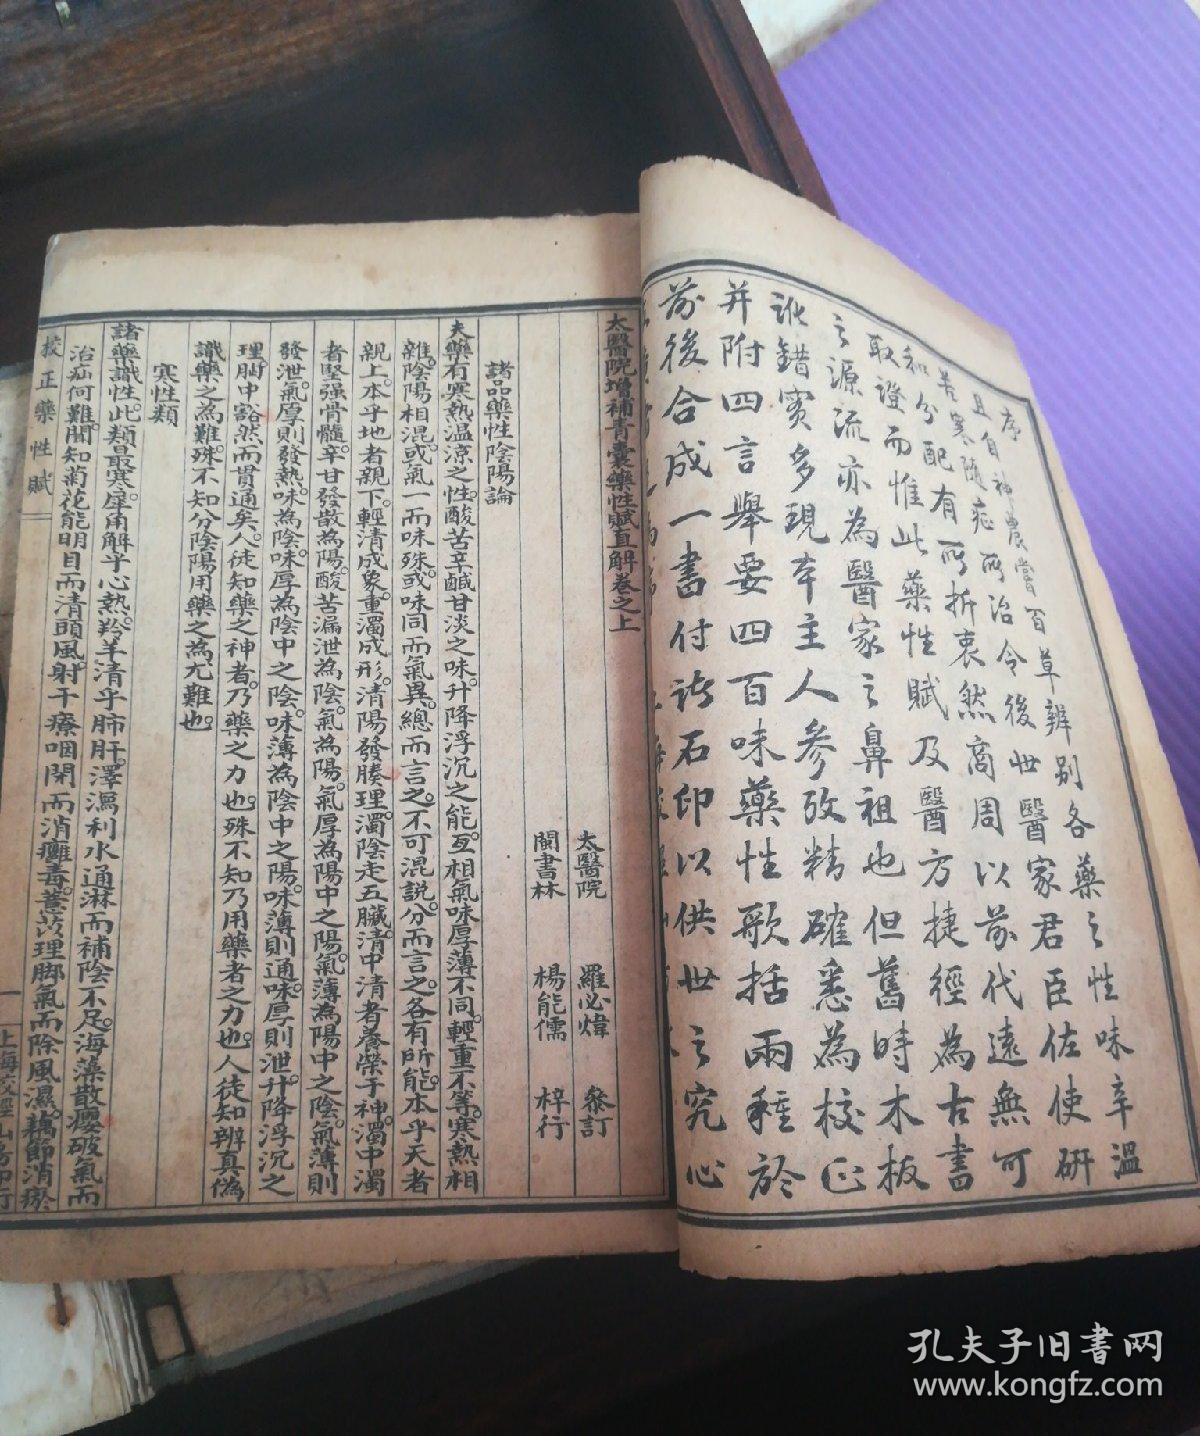 序
且自神農嘗百草辨別各藥之性味辛溫
苦寒隨症所治令後世醫家君臣佐使研
和分配有所折衷然商周以前代遠無可
取證而惟此藥性賦及醫方捷徑為古書
之源流亦為醫家之鼻祖也但舊時木板
訛錯實多現本主人參攷精確悉為校正
并附四言舉要四百味藥性歌括兩種於
前後合成一書付諸石印以供世之究心
太醫院增補青囊藥性賦直解卷之上
太醫院 羅必煒 叅訂
閩書林 楊能儒 梓行
諸品藥性陰陽論
夫藥有寒熱温涼之性。酸苦辛鹹甘淡之味。升降浮沉之能。互相氣味厚薄不同。輕重不等。寒熱相
雜。陰陽相混。或氣一而味殊。或味同而氣異。總而言之。不可混說。分而言之。各有所能。本乎天者
親上。本乎地者親下。輕清成象。重濁成形。清陽發腠理。濁陰走五臟。清中清者養榮于神。濁中濁
者堅强骨髓。辛甘發散為陽。酸苦漏泄為陰。氣為陽。氣厚為陽中之陽。氣薄為陽中之陰。氣薄則
發泄。氣厚則發熱。味為陰。味厚為陰中之陰。味薄為陰中之陽。味薄則通。味厚則泄。升降浮沉之
理。胷中豁然而貫通矣。人徒知藥之神者。乃藥之力也。殊不知乃用藥者之力也。人徒知辨真偽
識藥之為難。殊不知分陰陽用藥之為尤難也。
寒性類
諸藥識性。此類最寒。犀角解乎心熱。羚羊清乎肺肝。澤瀉利水通淋而補陰不足。海藻散癭破氣而
治疝何難。聞知菊花能明目而清頭風。射干療咽閉而消癰毒。薏苡理脚氣而除風濕。藕節消瘀
校正藥性賦
一
上海 山房印行
孔夫子旧书网
www.kongfz.com